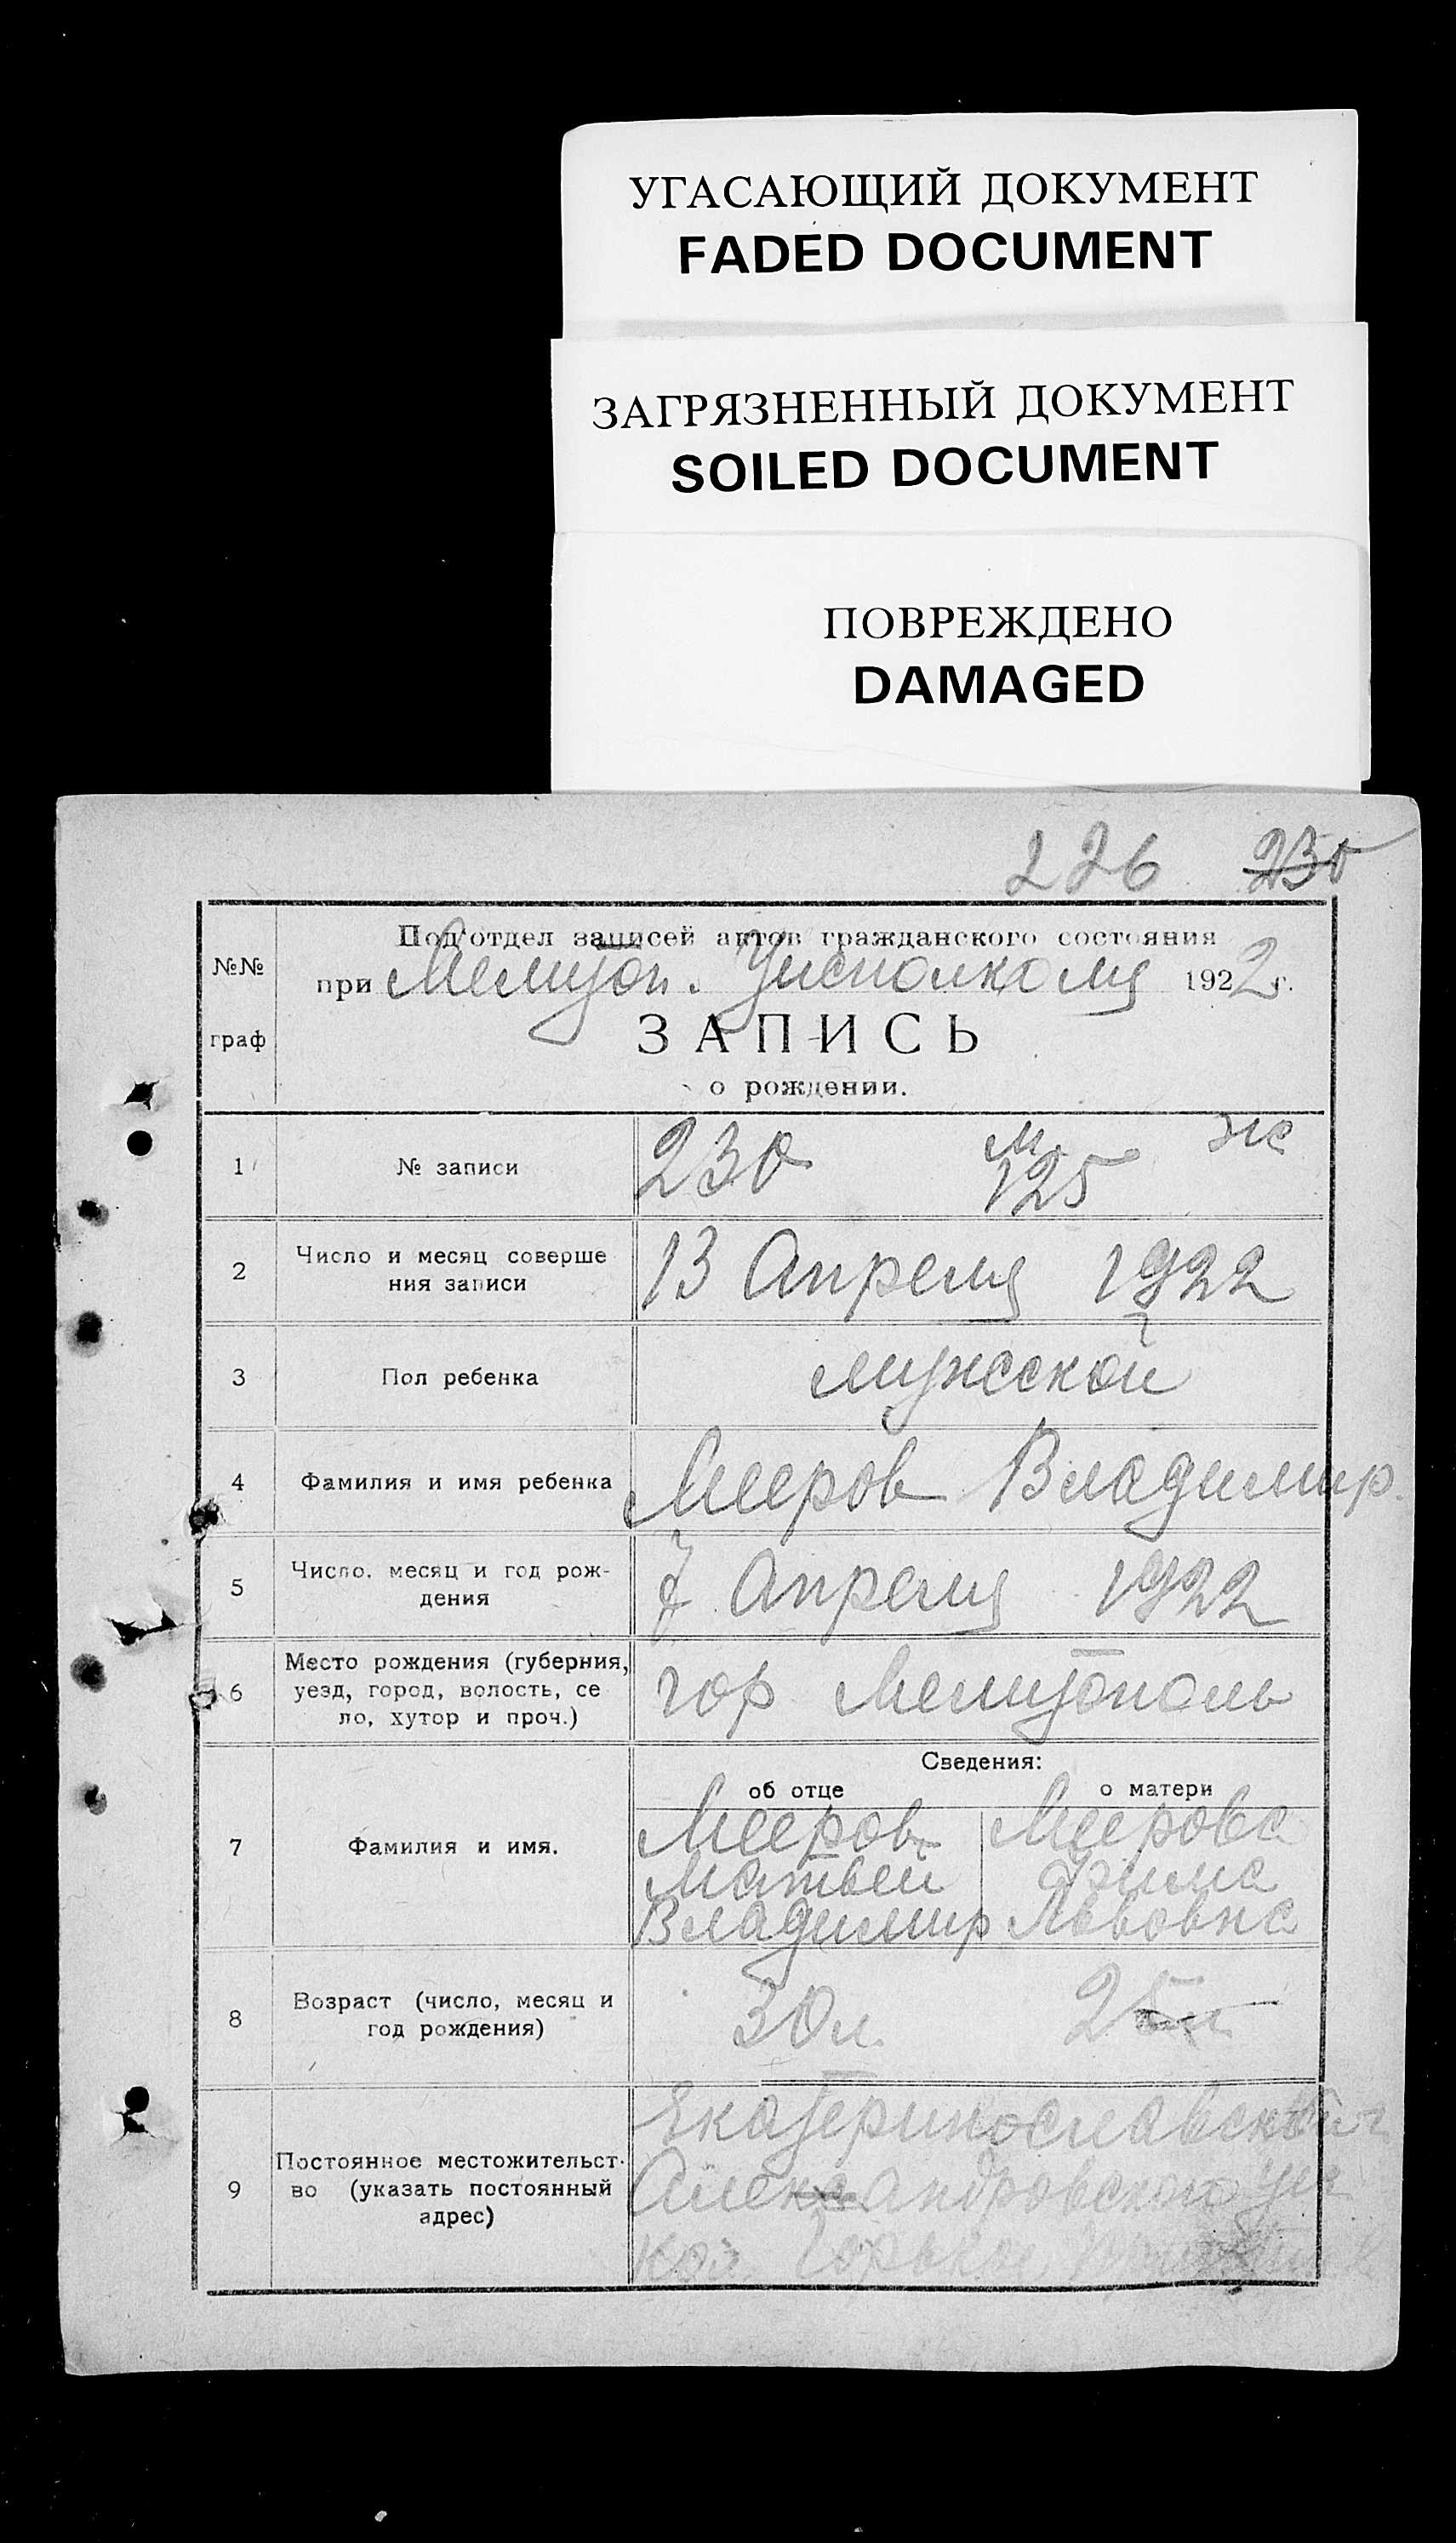 УГАСАЮЩИЙ ДОКУМЕНТ
FADED DOCUMENT
ЗАГРЯЗНЕННЫЙ ДОКУМЕНТ
SOILED DOCUMENT
ПОВРЕЖДЕНО
DAMAGED
226 230
№№ граф
Под'отдел записей актов гражданского состояния
при Мелитоп. Уисполкома 1922 г.
ЗАПИСЬ
о рождении.
1 № записи 230 м. 125 ж
2 Число и месяц соверше
ния записи 13 Апреля 1922
3 Пол ребенка мужской
4 Фамилия и имя ребенка Мееров Владимир.
5 Число. месяц и год рож-
дения 7 Апреля 1922
6 Место рождения (губерния,
уезд, город, волость, се
ло, хутор и проч.) гор Мелитополь
Сведения:
об отце о матери
7 Фамилия и имя. Мееров Меерова
Матвей Фима
Владимир Львовна
8 Возраст (число, месяц и
год рождения) 30 л. 25 л.
9 Постоянное местожительст-
во (указать постоянный
адрес)
Екатеринославской г
Александровского уез
кол. Горькая